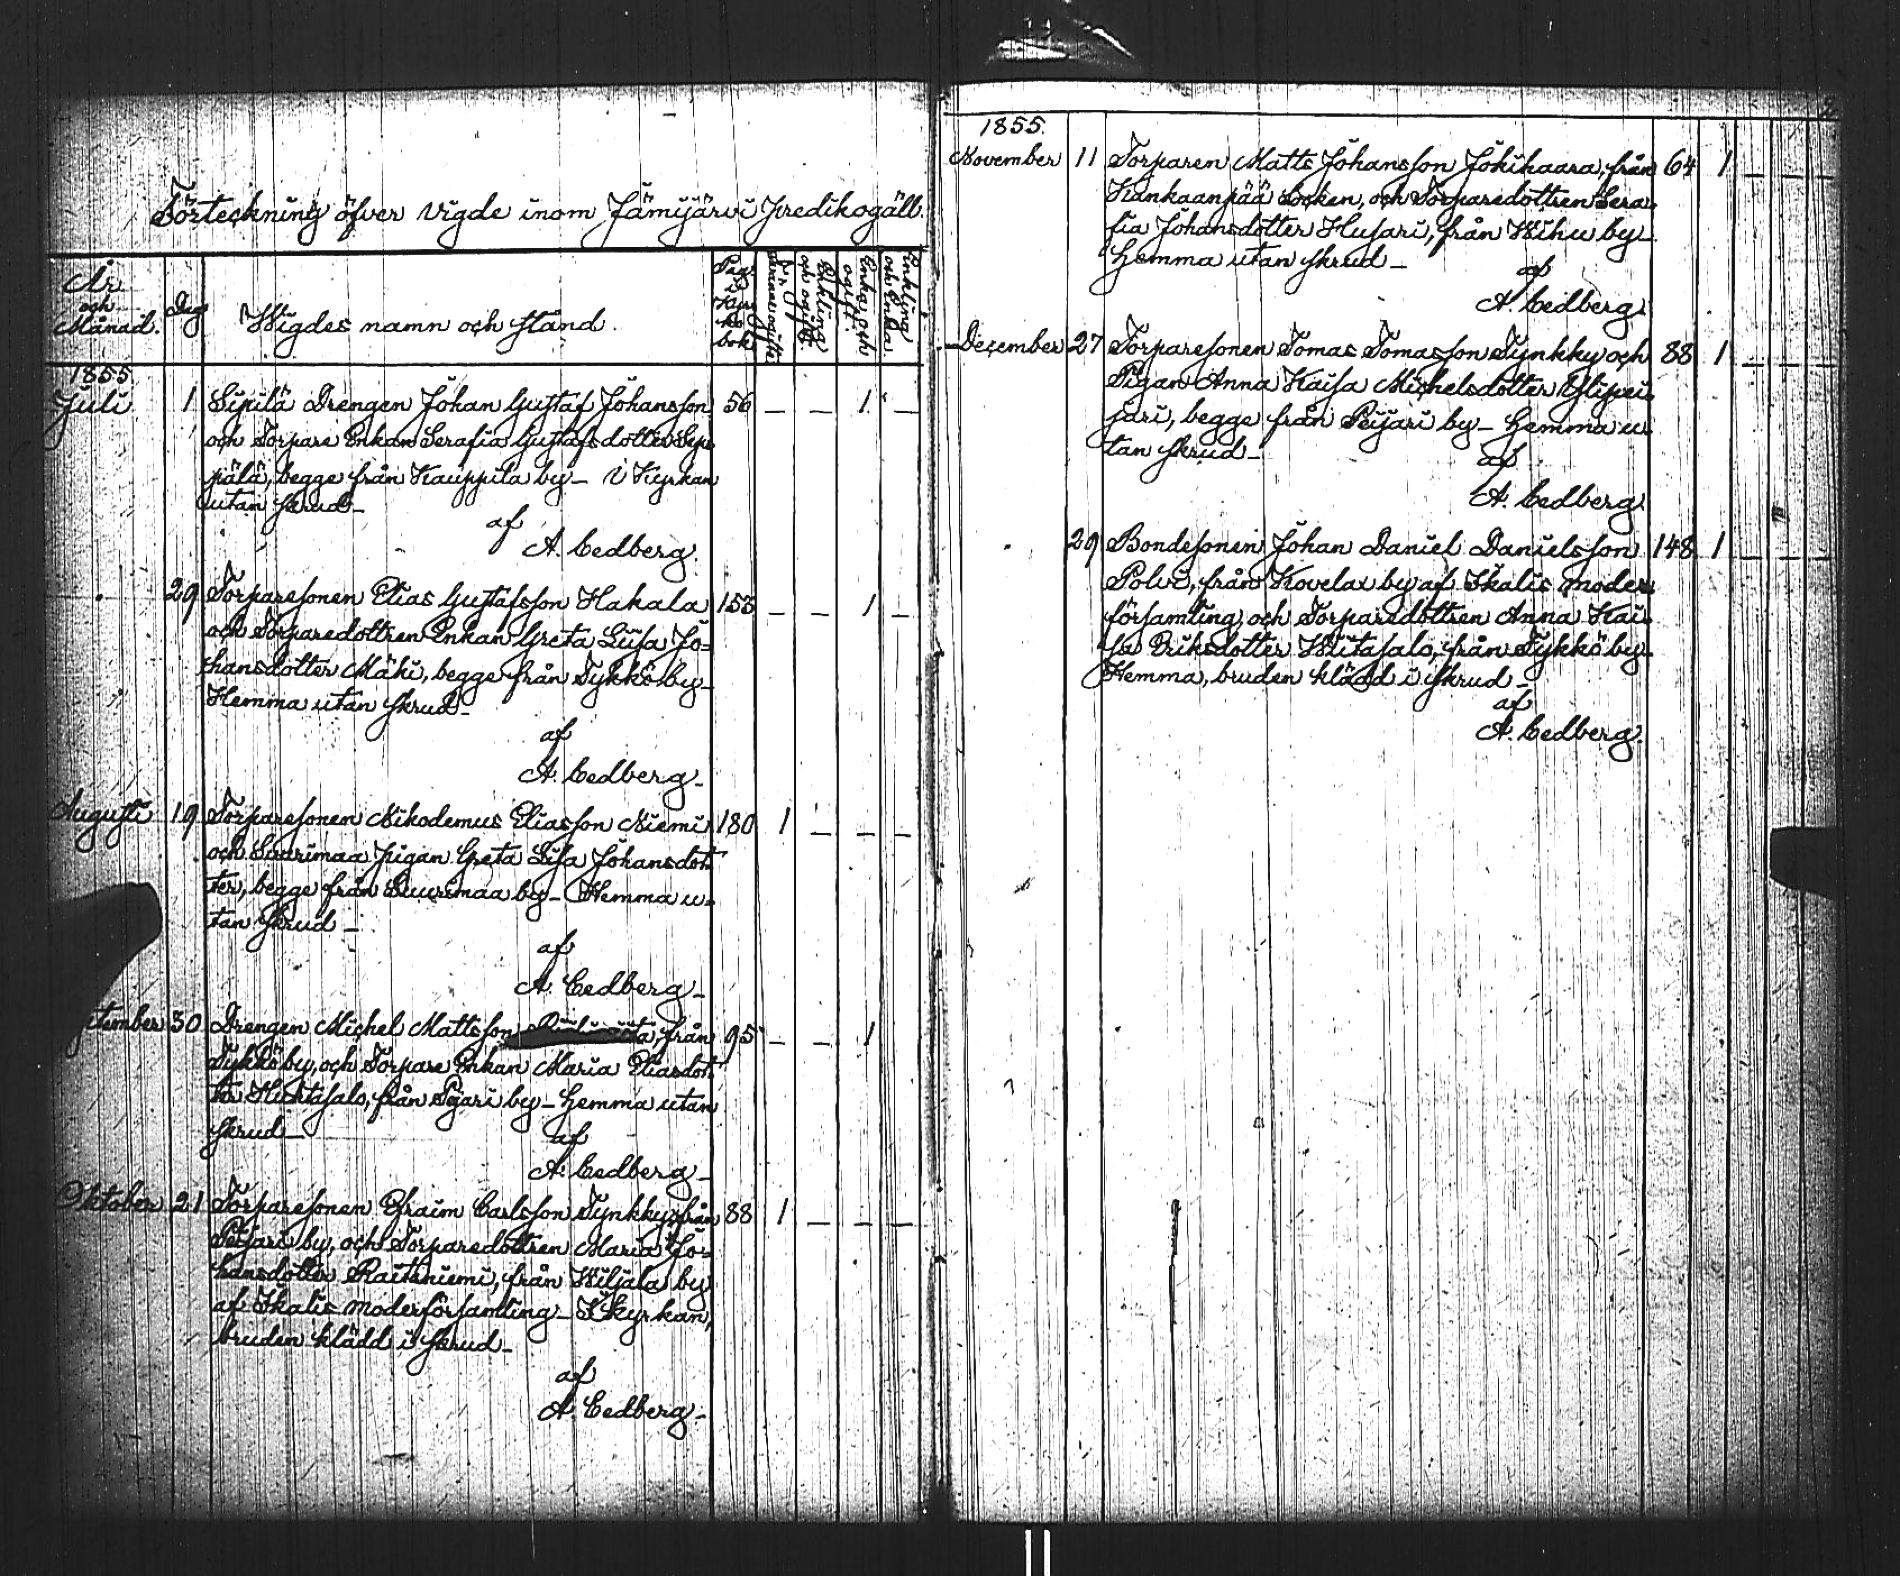 Förteckning öfver vigde inom Jämijärvi Predikogäll.
År och Månad.
Dag
Wigdes namn och stånd.
Pag. i Kyrko bok
Enkling och ogift.
Enka och ogift.
Enkling och Enka.
1855
Juli 1 Sipilä Drengen Johan Gustaf Johansson 56 – – 1 –
och Torpare Enkan Serafia Gustafsdotter Sep-
pälä, begge från Kauppila by – i Kyrkan
utan skrud –
af
A. Cedberg.
29 Torparesonen Elias Gustafsson Hakala 153 – – 1 –
och Torparedottren Enkan Greta Liisa Jo=
hansdotter Mäki, begge från Tykkö by –
Hemma utan skrud –
af
A. Cedberg –
Augusti 19 Torparesonen Nikodemus Eliasson Niemi 180 1 – – –
och Suurimaa pigan Greta Lisa Johansdot=
ter, begge från Suurimaa by – Hemma u=
tan skrud –
af
A. Cedberg –
tember 30 Drengen Michel Mattsson från 95 – – 1
Tykkö by, och Torpare Enkan Maria Eliasdot=
ter Hiertasalo, från Pejari by – Hemma utan
skrud –
af
A. Cedberg –
Oktober 21 Torparesonen Efraim Carlsson Tynkky, från 88 1 – – –
Peijari by, och Torparedottren Maria Jo=
hansdotter Raitaniemi, från Wiljala by
af Ikalis moderförsamling – I Kyrkan,
bruden klädd i skrud –
af
A. Cedberg –
1855.
November 11 Torparen Matts Johansson Jokihaara, från 64 1 – – –
Kankaanpää Socken, och Torparedottren Sera=
fia Johansdotter Husari, från Wihu by –
Hemma utan skrud –
af
A. Cedberg
December 27 Torparesonen Tomas Tomasson Tynkky och 88 1 – – –
Pigan Anna Kaisa Michelsdotter Ylipei=
jari, begge från Peijari by – Hemma u=
tan skrud –
af
A. Cedberg
29 Bondesonen Johan Daniel Danielsson 148 1 – – –
Polvi, från Kovelax by af Ikalis moder=
församling, och Torparedottren Anna Kai=
sa Eriksdotter Wiitasalo, från Tykkö by –
Hemma, bruden klädd i skrud –
af
A. Cedberg.